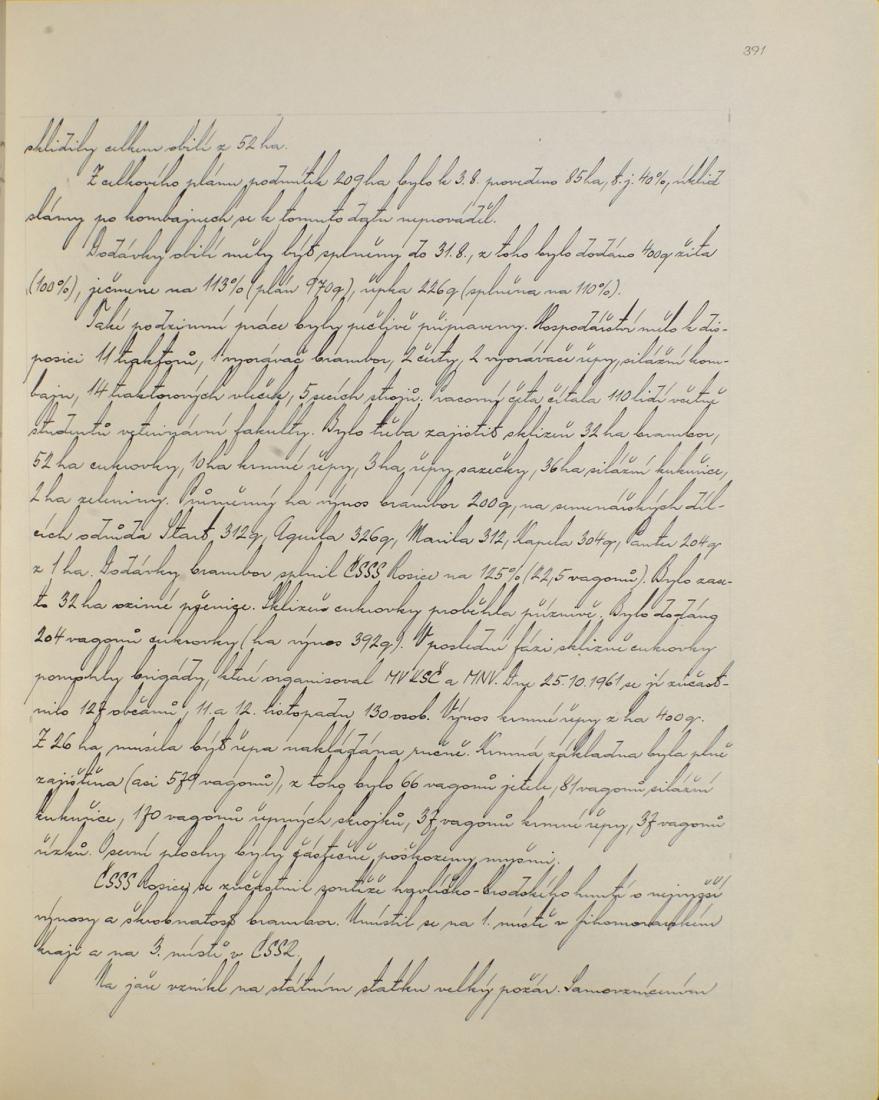 391
sklidily celkem obilí z 52 ha.
Z celkového plánu podmítek 209 ha bylo k 3. 8. provedeno 85 ha, t. j. 40%, úklid
slámy po kombajnech se k tomuto datu neprováděl.
Dodávky obilí měly být splněny do 31. 8., z toho bylo dodáno 400q žita
(100%), ječmene na 113% (plán 970q), řepka 226q (splněna na 110%).
Také podzimní práce byly pečlivě připraveny. Hospodářství mělo k dis-
posici 11 traktorů, 1 vyorávač brambor, 2 čerty, 2 vyorávače řepy, silážní kom-
bajn, 14 traktorových vleček, 5 secích strojů. Pracovní četa čítala 110 lidí včetně
studentů veterinární fakulty. Bylo třeba zajistit sklizeň 32 ha brambor,
52 ha cukrovky, 10 ha krmné řepy, 3 ha řepy sazečky, 36 ha silážní kukuřice,
2 ha zeleniny. Průměrný ha výnos brambor 200q, na semenářských díl-
cích odrůda Start 312q, Aquila 326q, Marila 312, Kapela 304q, Panter 204q
z 1 ha. Dodávky brambor splnil ČSSS Rosice na 125% (22,5 vagonů). Bylo zase-
to 32 ha ozimé pšenice. Sklizeň cukrovky proběhla příznivě. Bylo dodáno
204 vagonů cukrovky (ha výnos 392q). V poslední fázi sklizně cukrovky
pomohly brigády, které organisoval MV KSČ a MNV. Dne 25. 10. 1961 se jí zúčast-
nilo 127 občanů, 11. a 12. listopadu 130 osob. Výnos krmné řepy z ha 400q.
Z 26 ha musela být řepa nakládána ručně. Krmná základna byla plně
zajištěna (asi 579 vagonů), z toho bylo 66 vagonů jetele, 81 vagonů silážní
kukuřice, 170 vagonů řepných skrojků, 37 vagonů krmné řepy, 37 vagonů
řízků. Osevní plochy byly částečně poškozeny myšmi.
ČSSS Rosice se zúčastnil soutěže havlíčko-brodského hnutí o nejvyšší
výnosy a škrobnatost brambor. Umístil se na 1. místě v Jihomoravském
kraji a na 3. místě v ČSSR.
Na jaře vznikl na státním statku velký požár. Samovznícením